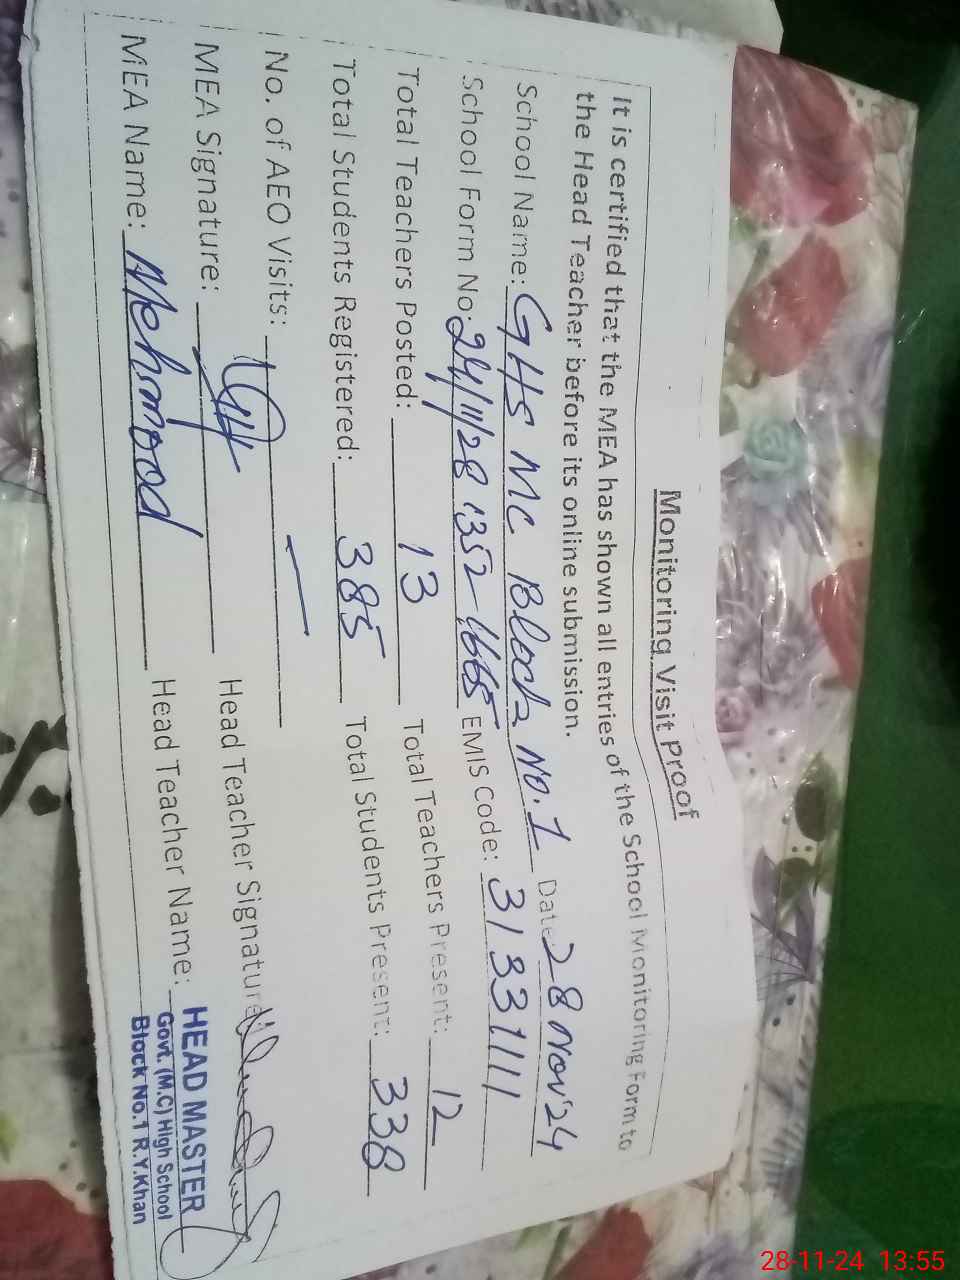 Monitoring Visit Proof
It is certified that the MEA has shown all entries of the School Monitoring Form to
the Head Teacher before its online submission.
School Name: GHS MC Block No. 1 Date 28 Nov'24
School Form No: 24/11/28 1352-1665 EMIS Code: 31331111
Total Teachers Posted: 13 Total Teachers Present: 12
Total Students Registered: 385 Total Students Present: 338
No. of AEO Visits: —
MEA Signature: Head Teacher Signature
MEA Name: Mehmood Head Teacher Name:
HEAD MASTER
Govt. (M.C) High School
Block No.1 R.Y.Khan
28-11-24 13:55